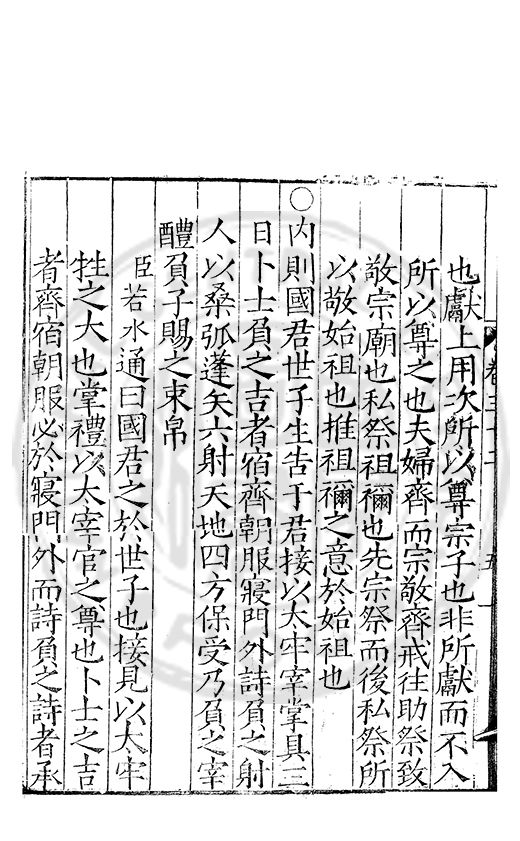 卷三十二　五
也獻上用次所以尊宗子也非所獻而不入
所以尊之也夫婦齊而宗敬齊戒往助祭致
敬宗廟也私祭祖禰也先宗祭而後私祭所
以敬始祖也推祖禰之意於始祖也
○内則國君世子生告于君接以太牢宰掌具三
日卜士負之吉者宿齊朝服寢門外詩負之射
人以桑弧蓬矢六射天地四方保受乃負之宰
醴負子賜之束帛
臣若水通曰國君之於世子也接見以太牢
牲之大也掌禮以太宰官之尊也卜士之吉
者齊宿朝服必於寢門外而詩負之詩者承